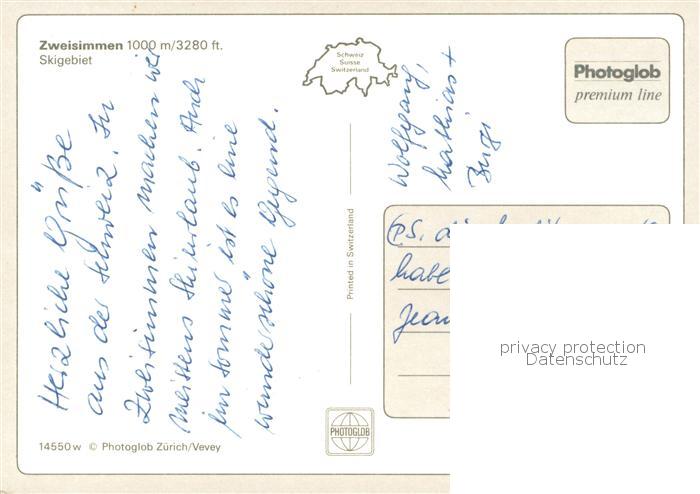 Zweisimmen 1000 m/3280 ft.
Skigebiet
Schweiz
Suisse
Switzerland
Photoglob
premium line
Herzliche Grüße
aus der Schweiz. In
Zweisimmen machen wir
meistens Skiurlaub. Auch
im Sommer ist es eine
wunderschöne Gegend.
Wolfgang,
Mathias +
P.S.
habe
Jean
Printed in Switzerland
PHOTOGLOB
14550w © Photoglob Zürich/Vevey
privacy protection
Datenschutz